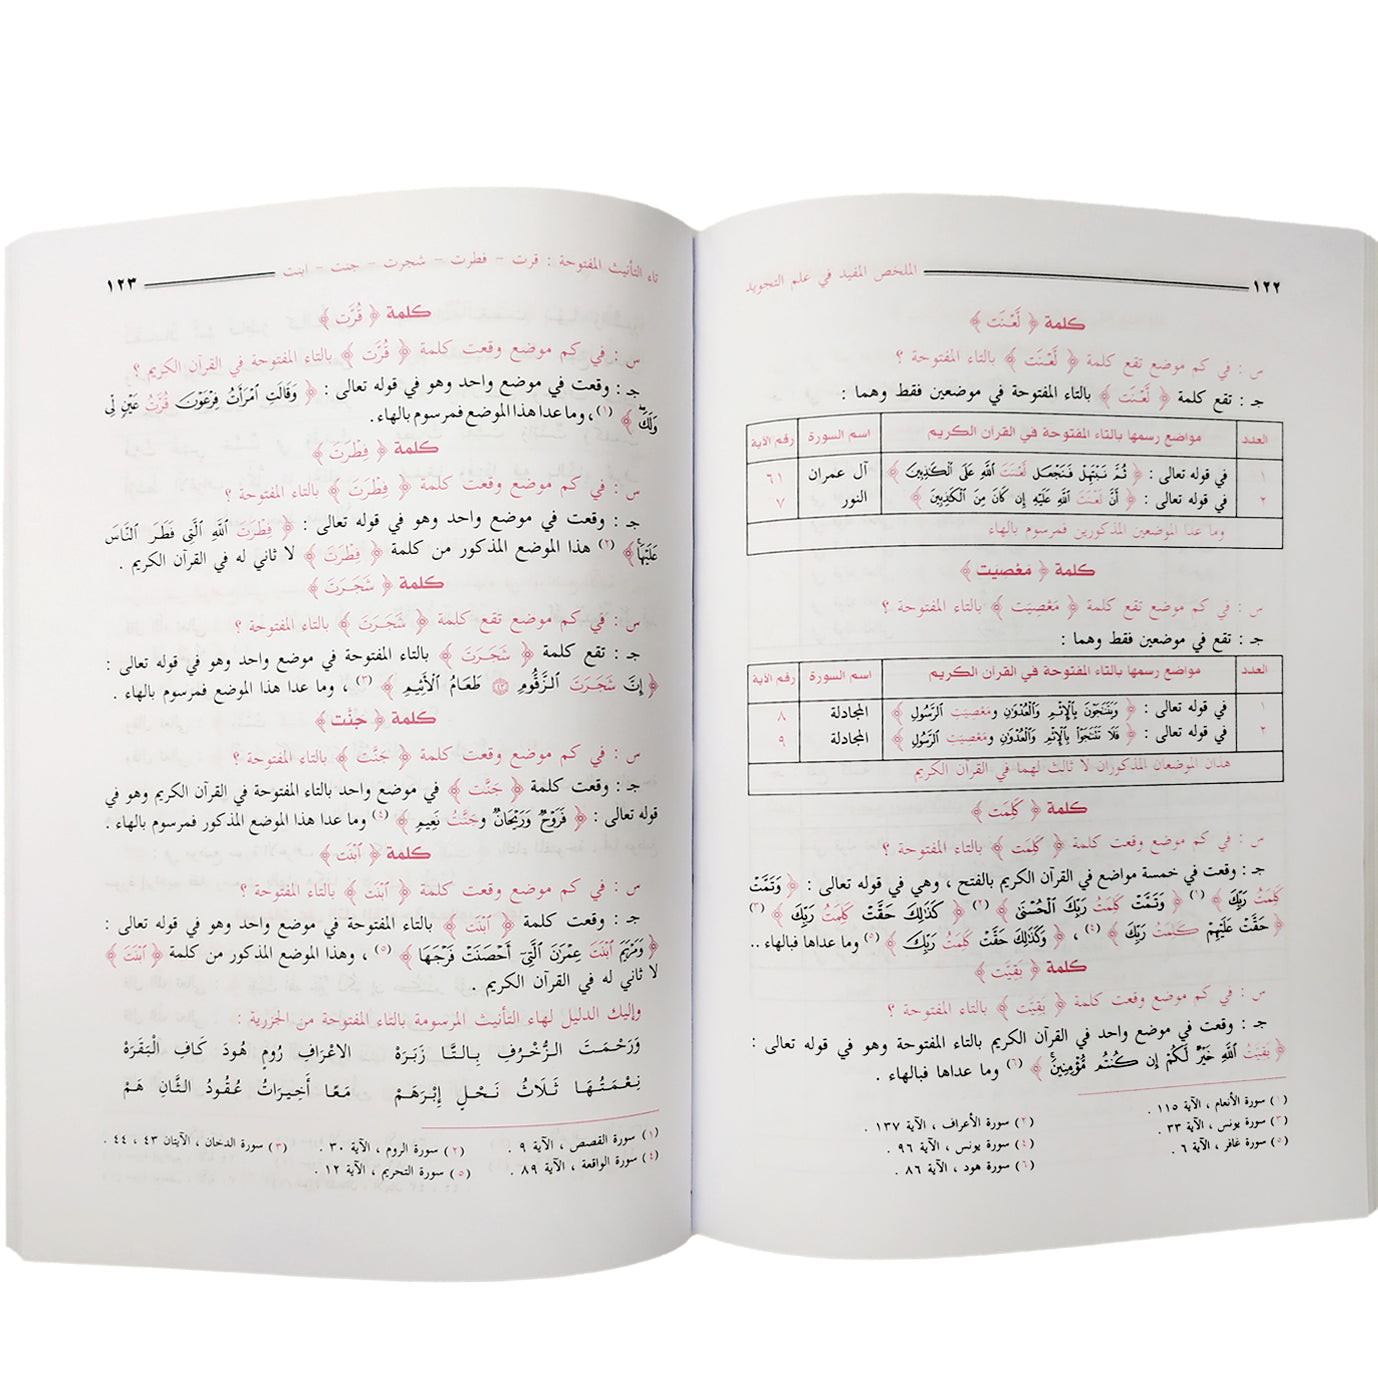 ١٢٢ الملخص المفيد في علم التجويد
كلمة ﴿ لَعْنَت ﴾
س : في كم موضع تقع كلمة ﴿ لَعْنَت ﴾ بالتاء المفتوحة ؟
جـ : تقع كلمة ﴿ لَعْنَت ﴾ بالتاء المفتوحة في موضعين فقط وهما :
العدد مواضع رسمها بالتاء المفتوحة في القرآن الكريم اسم السورة رقم الآية
١ في قوله تعالى : ﴿ ثُمَّ نَبْتَهِلْ فَنَجْعَل لَّعْنَتَ اللَّهِ عَلَى الْكَاذِبِينَ ﴾ آل عمران ٦١
٢ في قوله تعالى : ﴿ أَنَّ لَعْنَتَ اللَّهِ عَلَيْهِ إِن كَانَ مِنَ الْكَاذِبِينَ ﴾ النور ٧
وما عدا الموضعين المذكورين فمرسوم بالهاء
كلمة ﴿ مَعْصِيَت ﴾
س : في كم موضع تقع كلمة ﴿ مَعْصِيَت ﴾ بالتاء المفتوحة ؟
جـ : تقع في موضعين فقط وهما :
العدد مواضع رسمها بالتاء المفتوحة في القرآن الكريم اسم السورة رقم الآية
١ في قوله تعالى : ﴿ وَيَتَنَاجَوْنَ بِالْإِثْمِ وَالْعُدْوَانِ وَمَعْصِيَتِ الرَّسُولِ ﴾ المجادلة ٨
٢ في قوله تعالى : ﴿ فَلَا تَتَنَاجَوْا بِالْإِثْمِ وَالْعُدْوَانِ وَمَعْصِيَتِ الرَّسُولِ ﴾ المجادلة ٩
هذان الموضعان المذكوران لا ثالث لهما في القرآن الكريم
كلمة ﴿ كَلِمَت ﴾
س : في كم موضع وقعت كلمة ﴿ كَلِمَت ﴾ بالتاء المفتوحة ؟
جـ : وقعت في خمسة مواضع في القرآن الكريم بالفتح ، وهي في قوله تعالى : ﴿ وَتَمَّتْ
كَلِمَتُ رَبِّكَ ﴾ (١) ﴿ وَتَمَّتْ كَلِمَتُ رَبِّكَ الْحُسْنَى ﴾ (٢) ﴿ كَذَٰلِكَ حَقَّتْ كَلِمَتُ رَبِّكَ ﴾ (٣)
﴿ حَقَّتْ عَلَيْهِمْ كَلِمَتُ رَبِّكَ ﴾ (٤) ، ﴿ وَكَذَٰلِكَ حَقَّتْ كَلِمَتُ رَبِّكَ ﴾ (٥) وما عداها فبالهاء ..
كلمة ﴿ بَقِيَّت ﴾
س : في كم موضع وقعت كلمة ﴿ بَقِيَّت ﴾ بالتاء المفتوحة ؟
جـ : وقعت في موضع واحد في القرآن الكريم بالتاء المفتوحة وهو في قوله تعالى :
﴿ بَقِيَّتُ اللَّهِ خَيْرٌ لَّكُمْ إِن كُنتُم مُّؤْمِنِينَ ﴾ (٦) وما عداها فبالهاء .
(١) سورة الأنعام ، الآية ١١٥ . (٢) سورة الأعراف ، الآية ١٣٧ .
(٣) سورة يونس ، الآية ٣٣ . (٤) سورة يونس ، الآية ٩٦ .
(٥) سورة غافر ، الآية ٦ . (٦) سورة هود ، الآية ٨٦ .
تاء التأنيث المفتوحة : قرت - فطرت - شجرت - جنت - ابنت ١٢٣
كلمة ﴿ قُرَّت ﴾
س : في كم موضع وقعت كلمة ﴿ قُرَّت ﴾ بالتاء المفتوحة في القرآن الكريم ؟
جـ : وقعت في موضع واحد وهو في قوله تعالى : ﴿ وَقَالَتِ امْرَأَتُ فِرْعَوْنَ قُرَّتُ عَيْنٍ لِّي
وَلَكَ ﴾ (١) ، وما عدا هذا الموضع فمرسوم بالهاء.
كلمة ﴿ فِطْرَتَ ﴾
س : في كم موضع وقعت كلمة ﴿ فِطْرَتَ ﴾ بالتاء المفتوحة ؟
جـ : وقعت في موضع واحد وهو في قوله تعالى : ﴿ فِطْرَتَ اللَّهِ الَّتِي فَطَرَ النَّاسَ
عَلَيْهَا ﴾ (٢) هذا الموضع المذكور من كلمة ﴿ فِطْرَتَ ﴾ لا ثاني له في القرآن الكريم .
كلمة ﴿ شَجَرَتَ ﴾
س : في كم موضع تقع كلمة ﴿ شَجَرَتَ ﴾ بالتاء المفتوحة ؟
جـ : تقع كلمة ﴿ شَجَرَتَ ﴾ بالتاء المفتوحة في موضع واحد وهو في قوله تعالى :
﴿ إِنَّ شَجَرَتَ الزَّقُّومِ ٤٣ طَعَامُ الْأَثِيمِ ﴾ (٣) ، وما عدا هذا الموضع فمرسوم بالهاء .
كلمة ﴿ جَنَّت ﴾
س : في كم موضع وقعت كلمة ﴿ جَنَّت ﴾ بالتاء المفتوحة ؟
جـ : وقعت كلمة ﴿ جَنَّت ﴾ في موضع واحد بالتاء المفتوحة في القرآن الكريم وهو في
قوله تعالى : ﴿ فَرَوْحٌ وَرَيْحَانٌ وَجَنَّتُ نَعِيمٍ ﴾ (٤) وما عدا هذا الموضع المذكور فمرسوم بالهاء .
كلمة ﴿ ابْنَت ﴾
س : في كم موضع وقعت كلمة ﴿ ابْنَت ﴾ بالتاء المفتوحة ؟
جـ : وقعت كلمة ﴿ ابْنَت ﴾ بالتاء المفتوحة في موضع واحد وهو في قوله تعالى :
﴿ وَمَرْيَمَ ابْنَتَ عِمْرَانَ الَّتِي أَحْصَنَتْ فَرْجَهَا ﴾ (٥) ، وهذا الموضع المذكور من كلمة ﴿ ابْنَتَ ﴾
لا ثاني له في القرآن الكريم .
وإليك الدليل لهاء التأنيث المرسومة بالتاء المفتوحة من الجزرية :
وَرَحْمَتَ الزُّخْرُفِ بِالتَّا زَبَرَهْ الاعْرَافِ رُومٍ هُودَ كَافِ الْبَقَرَهْ
نِعْمَتُهَا ثَلَاثُ نَحْلٍ إِبْرَهَمْ مَعًا أَخِيرَاتُ عُقُودُ الثَّانِ هَمْ
(١) سورة القصص ، الآية ٩ . (٢) سورة الروم ، الآية ٣٠ . (٣) سورة الدخان ، الآيتان ٤٣ ، ٤٤ .
(٤) سورة الواقعة ، الآية ٨٩ . (٥) سورة التحريم ، الآية ١٢ .